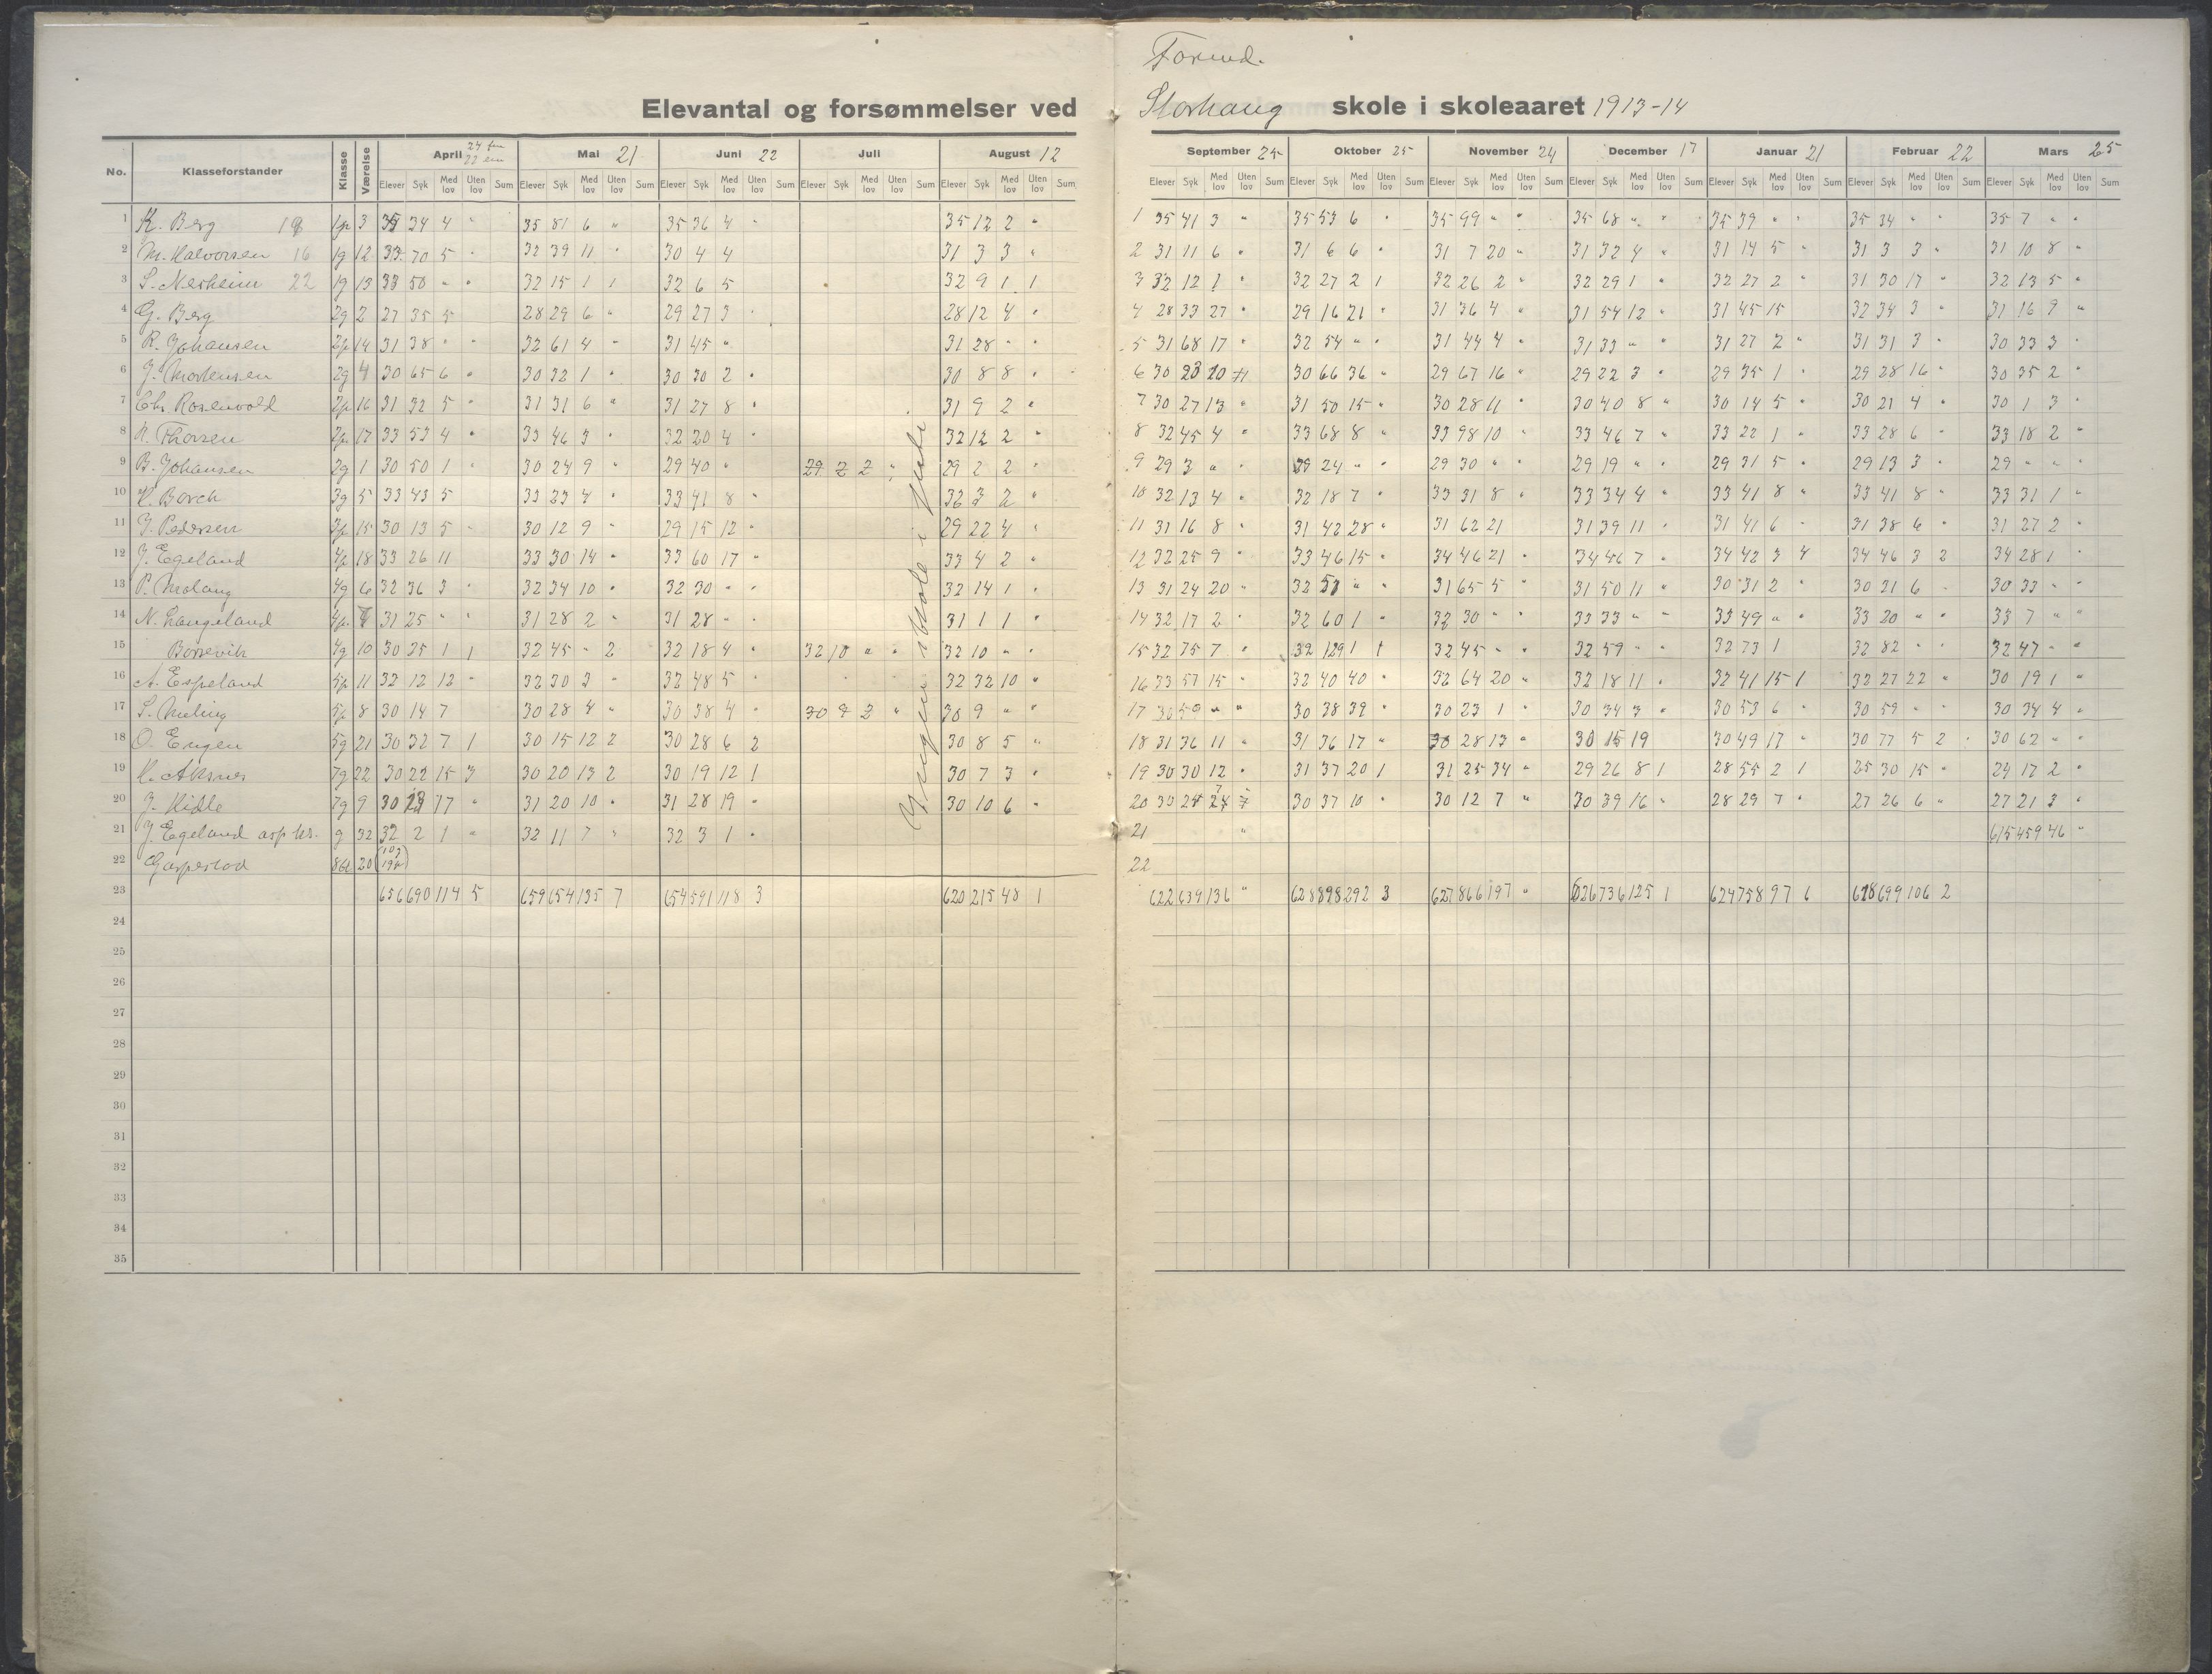 Formd.
Elevantal og forsømmelser ved Storhaug skole i skoleaaret 1913-14
No. Klasseforstander Klasse Værelse April 24 fm 22 em Mai 21 Juni 22 Juli August 12 September 25 Oktober 25 November 24 December 17 Januar 21 Februar 22 Mars 25
Elever Syk Med lov Uten lov Sum Elever Syk Med lov Uten lov Sum Elever Syk Med lov Uten lov Sum Elever Syk Med lov Uten lov Sum Elever Syk Med lov Uten lov Sum Elever Syk Med lov Uten lov Sum Elever Syk Med lov Uten lov Sum Elever Syk Med lov Uten lov Sum Elever Syk Med lov Uten lov Sum Elever Syk Med lov Uten lov Sum Elever Syk Med lov Uten lov Sum Elever Syk Med lov Uten lov Sum
1 K. Berg 1p 3 35 34 4 " 35 81 6 " 35 36 4 " 35 12 2 " 1 35 41 3 " 35 53 6 " 35 99 " " 35 68 " " 35 39 " " 35 34 " " 35 7 " "
2 M. Halvorsen 16 1g 12 33 70 5 " 32 39 11 " 30 4 4 31 3 3 " 2 31 11 6 " 31 6 6 " 31 7 20 " 31 32 4 " 31 14 5 " 31 3 3 " 31 10 8 "
3 S. Nesheim 22 1g 13 33 50 " " 32 15 1 1 32 6 5 32 9 1 1 3 32 12 1 " 32 27 2 1 32 26 2 " 32 29 1 " 32 27 2 " 31 30 17 " 32 13 5 "
4 G. Berg 2g 2 27 35 5 28 29 6 " 29 27 3 " 28 12 4 " 4 28 33 27 " 29 16 21 " 31 36 4 " 31 54 12 " 31 45 15 32 34 3 " 31 16 9 "
5 R. Johansen 2p 14 31 38 " " 32 61 4 " 31 45 " 31 28 " " 5 31 68 17 " 32 54 " " 31 44 4 " 31 33 " " 31 27 2 " 31 31 3 " 30 33 3 "
6 J. Mortensen 2g 4 30 65 6 " 30 32 1 " 30 30 2 " 30 8 8 " 6 30 23 10 30 66 36 " 29 67 16 " 29 22 3 " 29 35 1 " 29 28 16 " 30 35 2 "
7 Chr. Rosenvold 2p 16 31 32 5 " 31 31 6 " 31 27 8 " 31 9 2 " 7 30 27 13 " 31 50 15 " 30 28 11 " 30 40 8 " 30 14 5 " 30 21 4 " 30 1 3 "
8 R. Thorsen 2p 17 33 53 4 " 33 46 3 " 32 20 4 " 32 12 2 " 8 32 45 4 " 33 68 8 " 33 98 10 " 33 46 7 " 33 22 1 " 33 28 6 " 33 18 2 "
9 B. Johansen 2g 1 30 50 1 " 30 24 9 " 29 40 " 29 2 2 " 29 2 2 " 9 29 3 " " 29 24 " " 29 30 " " 29 19 " " 29 31 5 " 29 13 3 " 29 " " "
10 H. Borch 3g 5 33 43 5 33 23 4 " 33 41 8 " 32 3 2 " 10 32 13 4 " 32 18 7 " 33 31 8 " 33 34 4 " 33 41 8 " 33 41 8 " 33 31 1 "
11 J. Pedersen 3p 15 30 13 5 " 30 12 9 " 29 15 12 " 29 22 4 " 11 31 16 8 " 31 42 28 " 31 62 21 31 39 11 " 31 41 6 " 31 38 6 " 31 27 2 "
12 J. Egeland 4p 18 33 26 11 33 30 14 " 33 60 17 " 33 4 2 " 12 32 25 9 " 33 46 15 " 34 46 21 " 34 46 7 " 34 42 3 4 34 46 3 2 34 28 1 "
13 P. Molaug 4g 6 32 36 3 " 32 34 10 " 32 30 " " 32 14 1 " 13 31 24 20 " 32 51 " " 31 65 5 " 31 50 11 " 30 31 2 " 30 31 6 30 33 " "
14 N. Haugeland 4p 7 31 25 " " 31 28 2 " 31 28 " " 31 1 1 " 14 32 17 2 " 32 60 1 " 32 30 " " 33 33 " " 33 49 " " 33 20 " " 33 7 " "
15 Borsevik 4g 10 30 25 1 1 32 45 " 2 32 18 4 " 32 10 " " 32 10 " " 15 32 75 7 " 32 129 1 1 32 45 " " 32 59 " " 32 73 1 32 82 " " 32 47 " "
16 A. Espeland 5p 11 32 12 12 " 32 30 3 " 32 48 5 " 32 32 10 " 16 33 57 15 " 32 40 40 " 32 64 20 " 32 18 11 " 32 41 15 1 32 27 22 " 30 19 1 "
17 S. Meling 5p 8 30 14 7 30 28 4 " 30 38 4 " 30 9 2 " 30 9 " " 17 30 59 " " 30 38 39 " 30 23 1 " 30 34 3 " 30 53 6 " 30 59 " " 30 34 4 "
18 O. Engen 5g 21 30 32 7 1 30 15 12 2 30 28 6 2 30 8 5 " 18 31 36 11 " 31 36 17 " 30 28 13 " 30 15 19 30 49 17 " 30 77 5 2 30 62 " "
19 H. Aksnes 7g 22 30 22 15 3 30 20 13 2 30 19 12 1 30 7 3 " 19 30 30 12 " 31 37 20 1 31 25 34 " 29 26 8 1 28 55 2 1 25 30 15 " 24 17 2 "
20 J. Hidle 7g 9 30 13 17 " 31 20 10 " 31 28 19 " 30 10 6 " 20 30 25 24 30 37 10 " 30 12 7 " 30 39 16 " 28 29 7 " 27 26 6 " 27 21 3 "
21 J. Egeland asp kl. g 32 32 2 1 " 32 11 7 " 32 3 1 " 21 " 615 459 46 "
22 Gaspestad 8kl 20 22
23 656 690 114 5 659 654 135 7 654 591 118 3 620 215 48 1 622 639 136 " 628 898 292 3 627 866 197 " 626 736 125 1 624 758 97 6 618 699 106 2
Ingen skole i juli
24
25
26
27
28
29
30
31
32
33
34
35